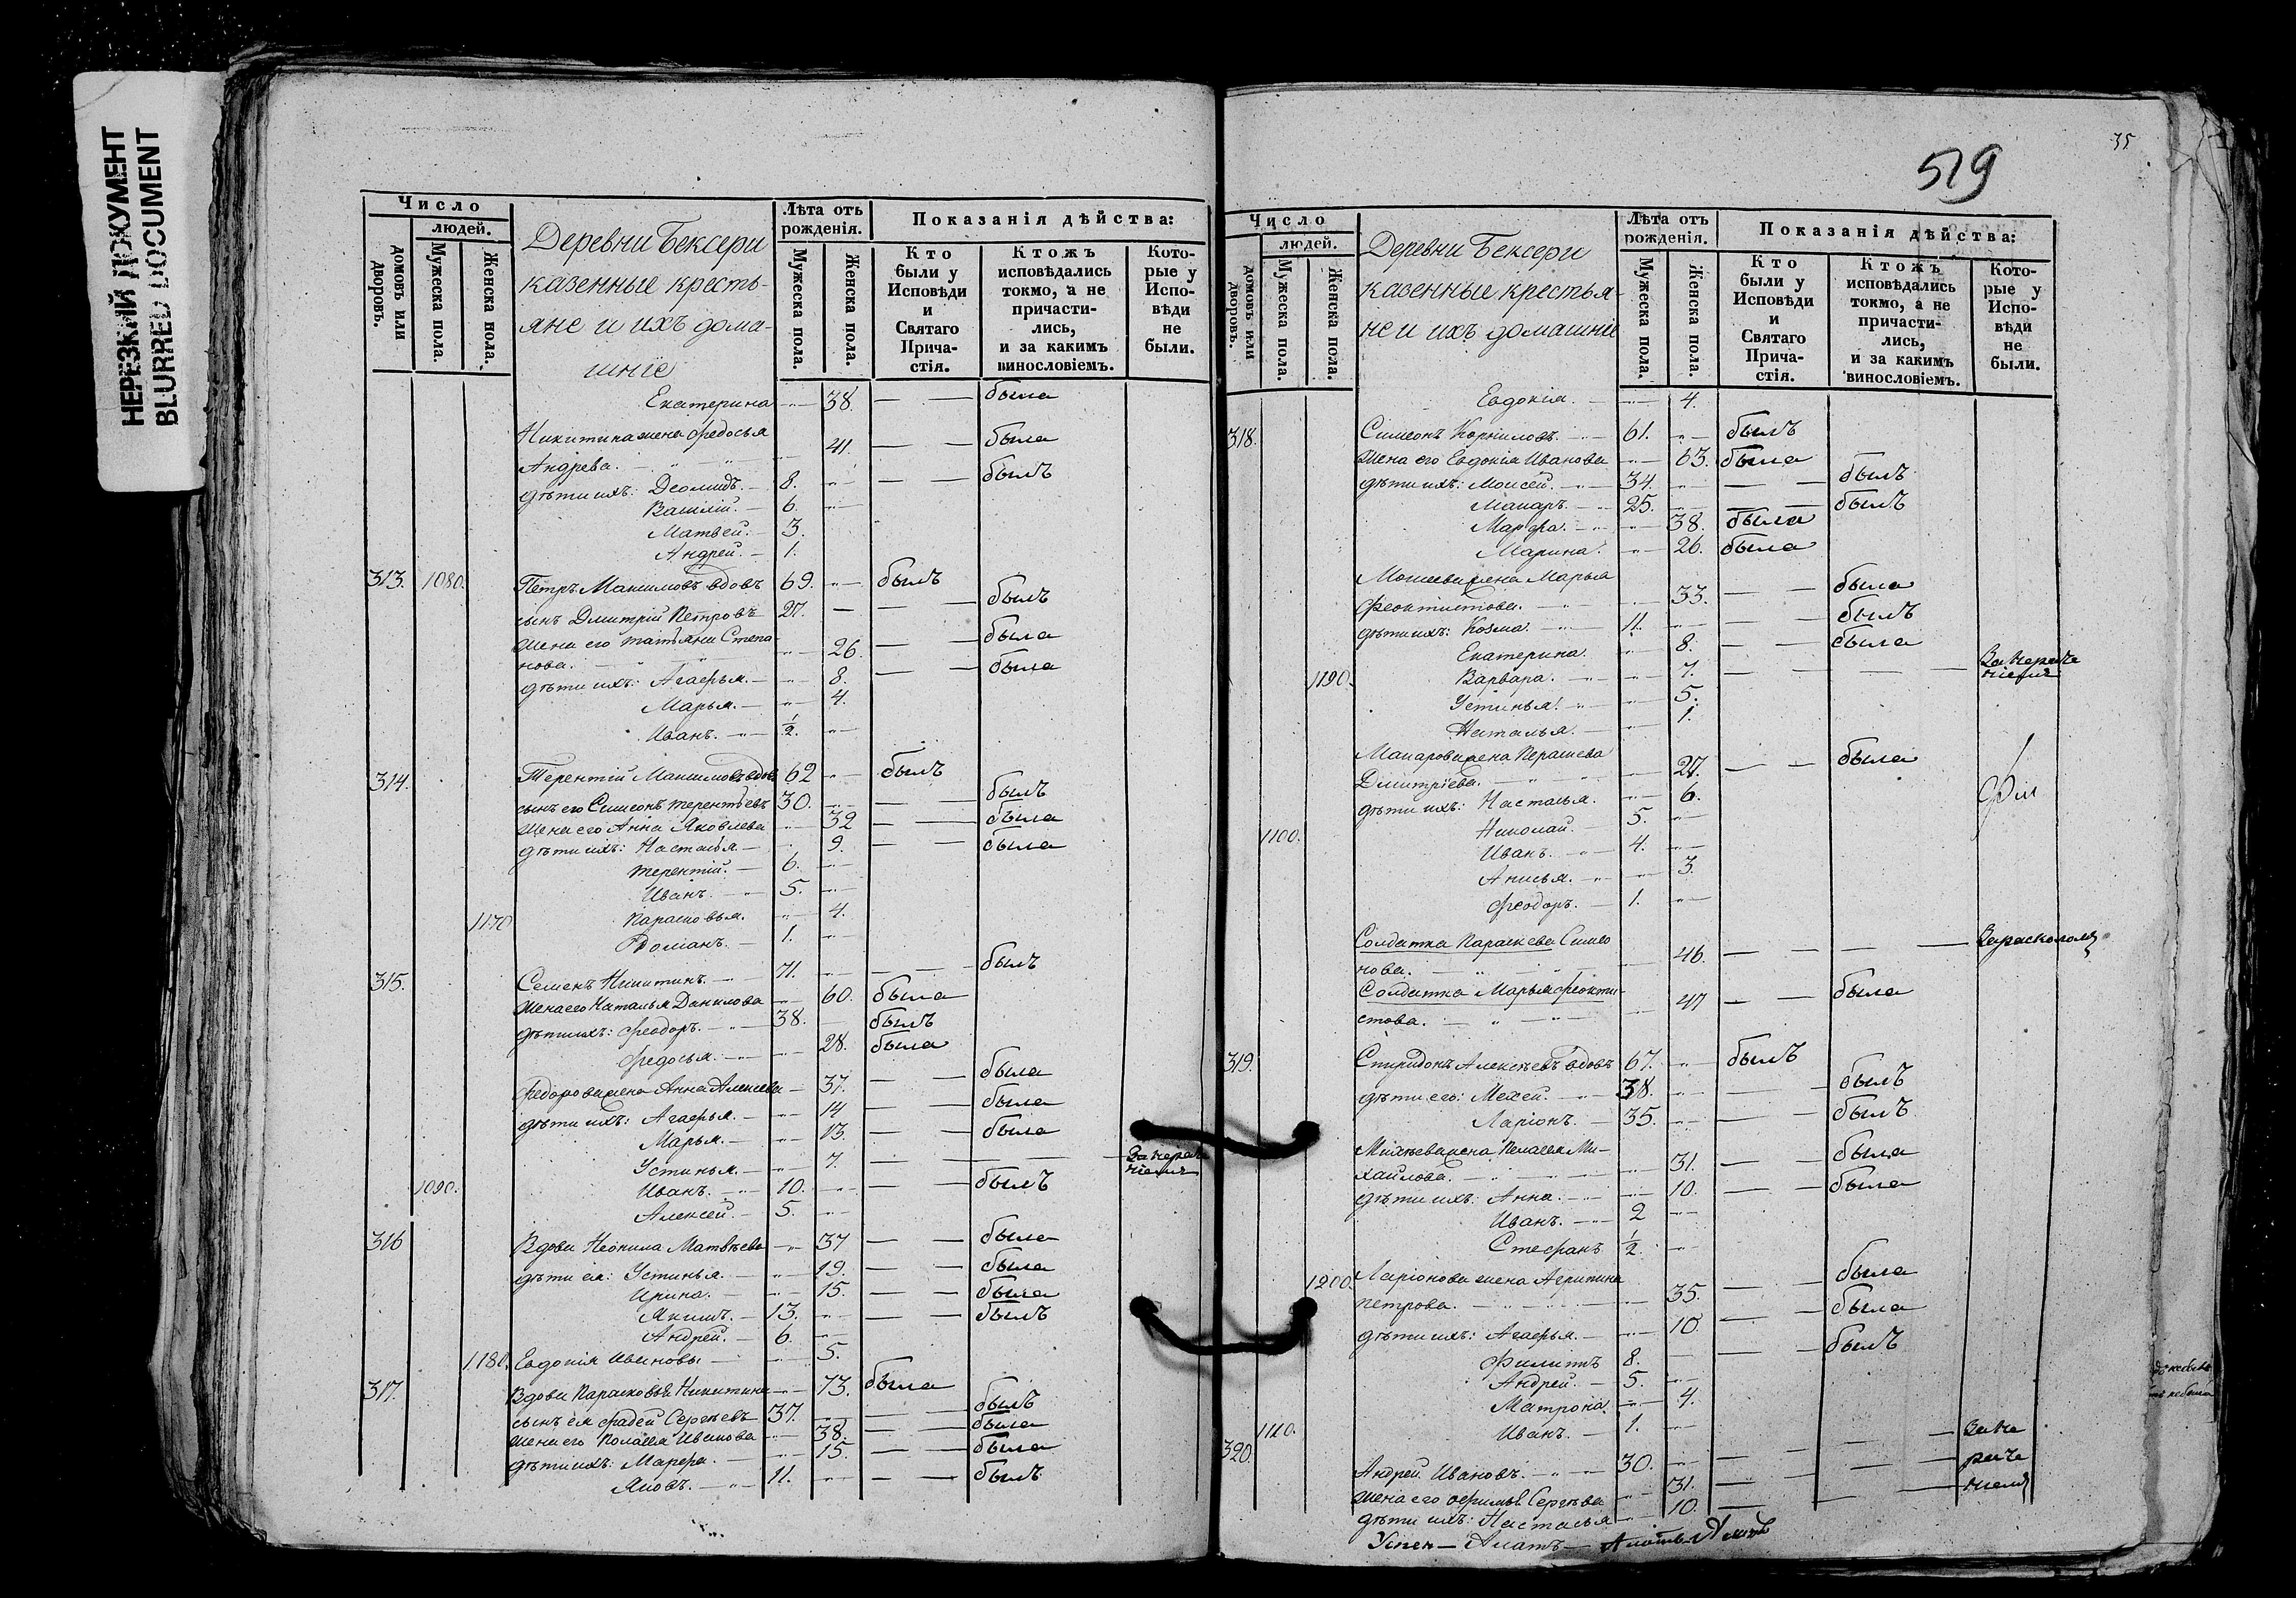 НЕРЕЗКИЙ ДОКУМЕНТ
BLURRED DOCUMENT
Число
людей.
домовъ или дворовъ.
Мужеска пола.
Женска пола.
Деревни Бексери
казенные кресть-
яне и ихъ дома-
шніе
Лѣта отъ рожденія.
Мужеска пола.
Женска пола.
Показанія дѣйства:
Кто были у Исповѣди и Святаго Прича-стія.
Ктожъ исповѣдались токмо, а не причасти-лись, и за какимъ винословіемъ.
Кото-рые у Испо-вѣди не были.
Екатерина 38. была
Никитина жена Федосья
Андрева. 41. была
дѣти ихъ: Деомидъ. 8. былъ
Василій. 6.
Матвей. 3.
Андрей. 1.
313. 1080. Петръ Максимовъ вдовъ 69. былъ
сынъ Дмитрій Петровъ 27. былъ
жена его Татьяна Степа-
нова. 26. была
дѣти ихъ: Агафья. 8. была
Марья. 4.
Иванъ. ½.
314. Терентій Максимовъ вдов. 62 былъ
сынъ его Симеонъ Терентьевъ 30. былъ
жена его Анна Яковлева 32 была
дѣти ихъ: Настасья 9. была
Терентій. 6.
Иванъ. 5.
1170 Парасковья. 4.
Романъ. 1.
315. Семенъ Никитинъ. 71. былъ
жена его Наталья Данилова 60. была
дѣти ихъ: Феодоръ. 38. былъ
Федосья. 28. была
Федорова жена Анна Алексеева 37. была
дѣти ихъ: Агафья. 14 была
Марья. 13. была
Устинья. 7.
1090. Иванъ. 10. былъ
Алексей. 5.
316 Вдова Неонила Матвѣева 37 была
дѣти ея: Устинья. 19. была
Ирина. 15. была
Якимъ. 13. былъ
Андрей. 6.
1180. Евдокія Иванова 5.
317. Вдова Парасковья Никитина 73. была
сынъ ея Фадей Сергѣевъ 37. былъ
жена его Полагея Иванова 38. была
дѣти ихъ: Марфа. 15. была
Яковъ. 11. былъ
519
35
Число
людей.
домовъ или дворовъ.
Мужеска пола.
Женска пола.
Деревни Бексери
казенные крестья-
не и ихъ домашніе
Лѣта отъ рожденія.
Мужеска пола.
Женска пола.
Показанія дѣйства:
Кто были у Исповѣди и Святаго Прича-стія.
Ктожъ исповѣдались токмо, а не причасти-лись, и за какимъ винословіемъ.
Кото-рые у Испо-вѣди не были.
Евдокія. 4.
318. Симеонъ Корниловъ. 61. былъ
жена его Евдокія Иванова 63. была
дѣти ихъ: Моисей. 34. былъ
Макаръ. 25. былъ
Марфа. 38. была
Марина. 26. была
Моисеева жена Марья
Феоктистова. 33. была
дѣти ихъ: Козма. 11. былъ
Екатерина 8. была
1190. Варвара. 7.
Устинья. 5.
Наталья. 1.
Макарова жена Перасева
Дмитріева. 27. была
дѣти ихъ: Настасья. 6.
Николай. 5.
1100. Иванъ. 4.
Анисья. 3.
Феодоръ. 1.
Солдатка Параскева Симео
нова. 46. За расколомъ
Солдатка Марья Феокти-
стова. 47 была
319. Спиридонъ Алексѣевъ вдовъ 67. былъ
дѣти его: Михей. 38. былъ
Ларіонъ. 35. былъ
Михѣева жена Пелагея Ми-
хаилова. 31. была
дѣти ихъ: Анна. 10. была
Иванъ. 2
Стефанъ ½.
1200. Ларіонова жена Агрипина
Петрова. 35. была
дѣти ихъ: Агафья. 10. была
Филиппъ 8. былъ
Андрей. 5.
Матрона. 4.
1110. Иванъ. 1.
320. Андрей Ивановъ. 30. За не
жена его Офимья Сергѣева 31. раче
дѣти ихъ: Настасья 10. ніемъ